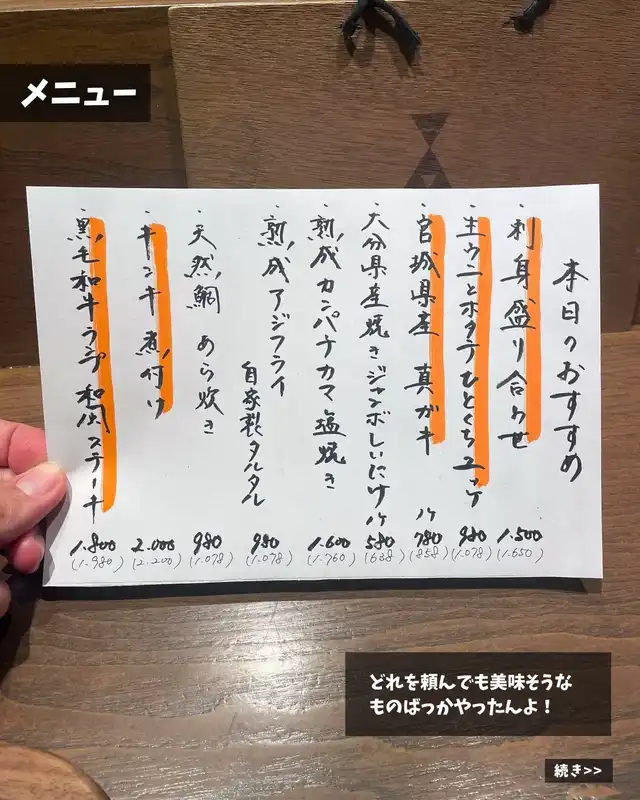 メニュー
本日のおすすめ
・刺身盛り合わせ 1.500 (1.650)
・生ウニとホタテひとくちユッケ 980 (1.078)
・宮城県産 真ガキ 1ヶ 780 (858)
・大分県産焼きジャンボしいたけ 1ヶ 580 (638)
・熟成カンパチカマ塩焼き 1.600 (1.760)
・熟成アジフライ
自家製タルタル 980 (1.078)
・天然鯛 あら炊き 980 (1.078)
・キンキ煮付け 2.000 (2.200)
・黒毛和牛ラン���� 和風ステーキ 1.800 (1.980)
どれを頼んでも美味そうな
ものばっかやったんよ！
続き>>